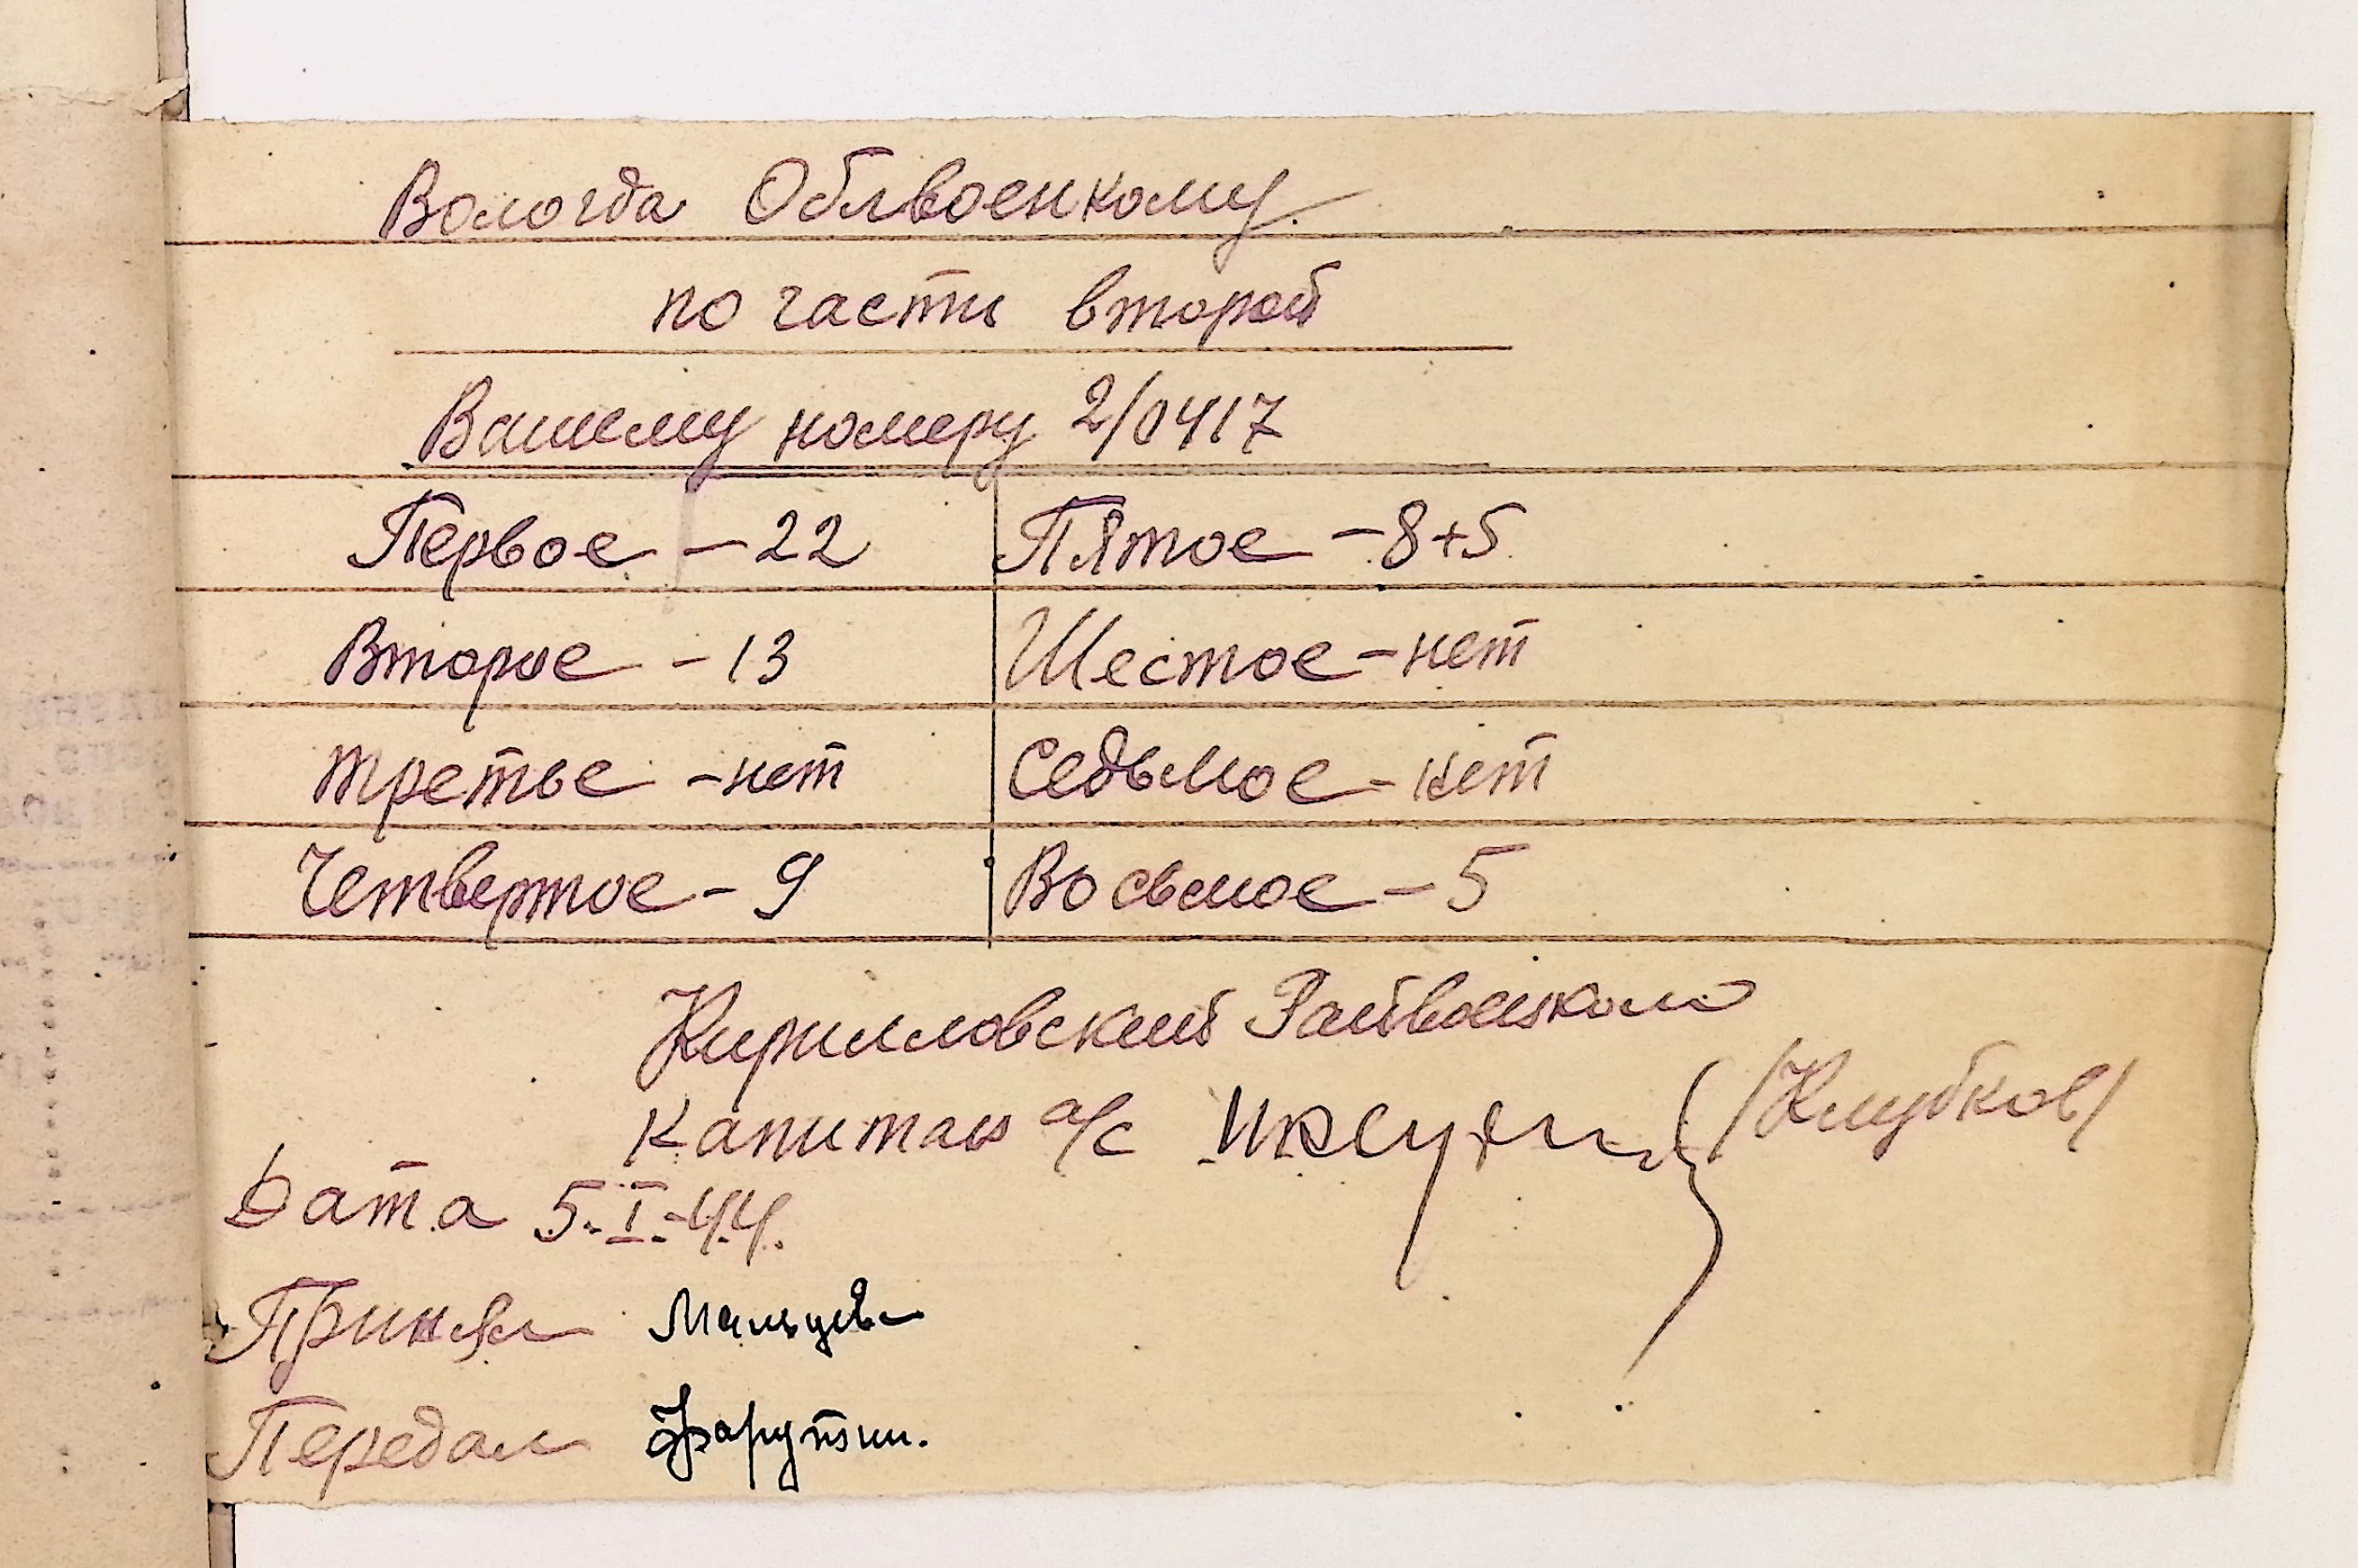 Вологда Облвоенкому.
по части второй
Вашему номеру 2/0417
Первое – 22 Пятое – 8+5
Второе – 13 Шестое – нет
Третье – нет Седьмое – нет
Четвертое – 9 Восьмое – 5
Кирилловский Райвоенком
капитан а/с /Клубков/
Дата 5.I.44.
Принял Мальцева
Передал